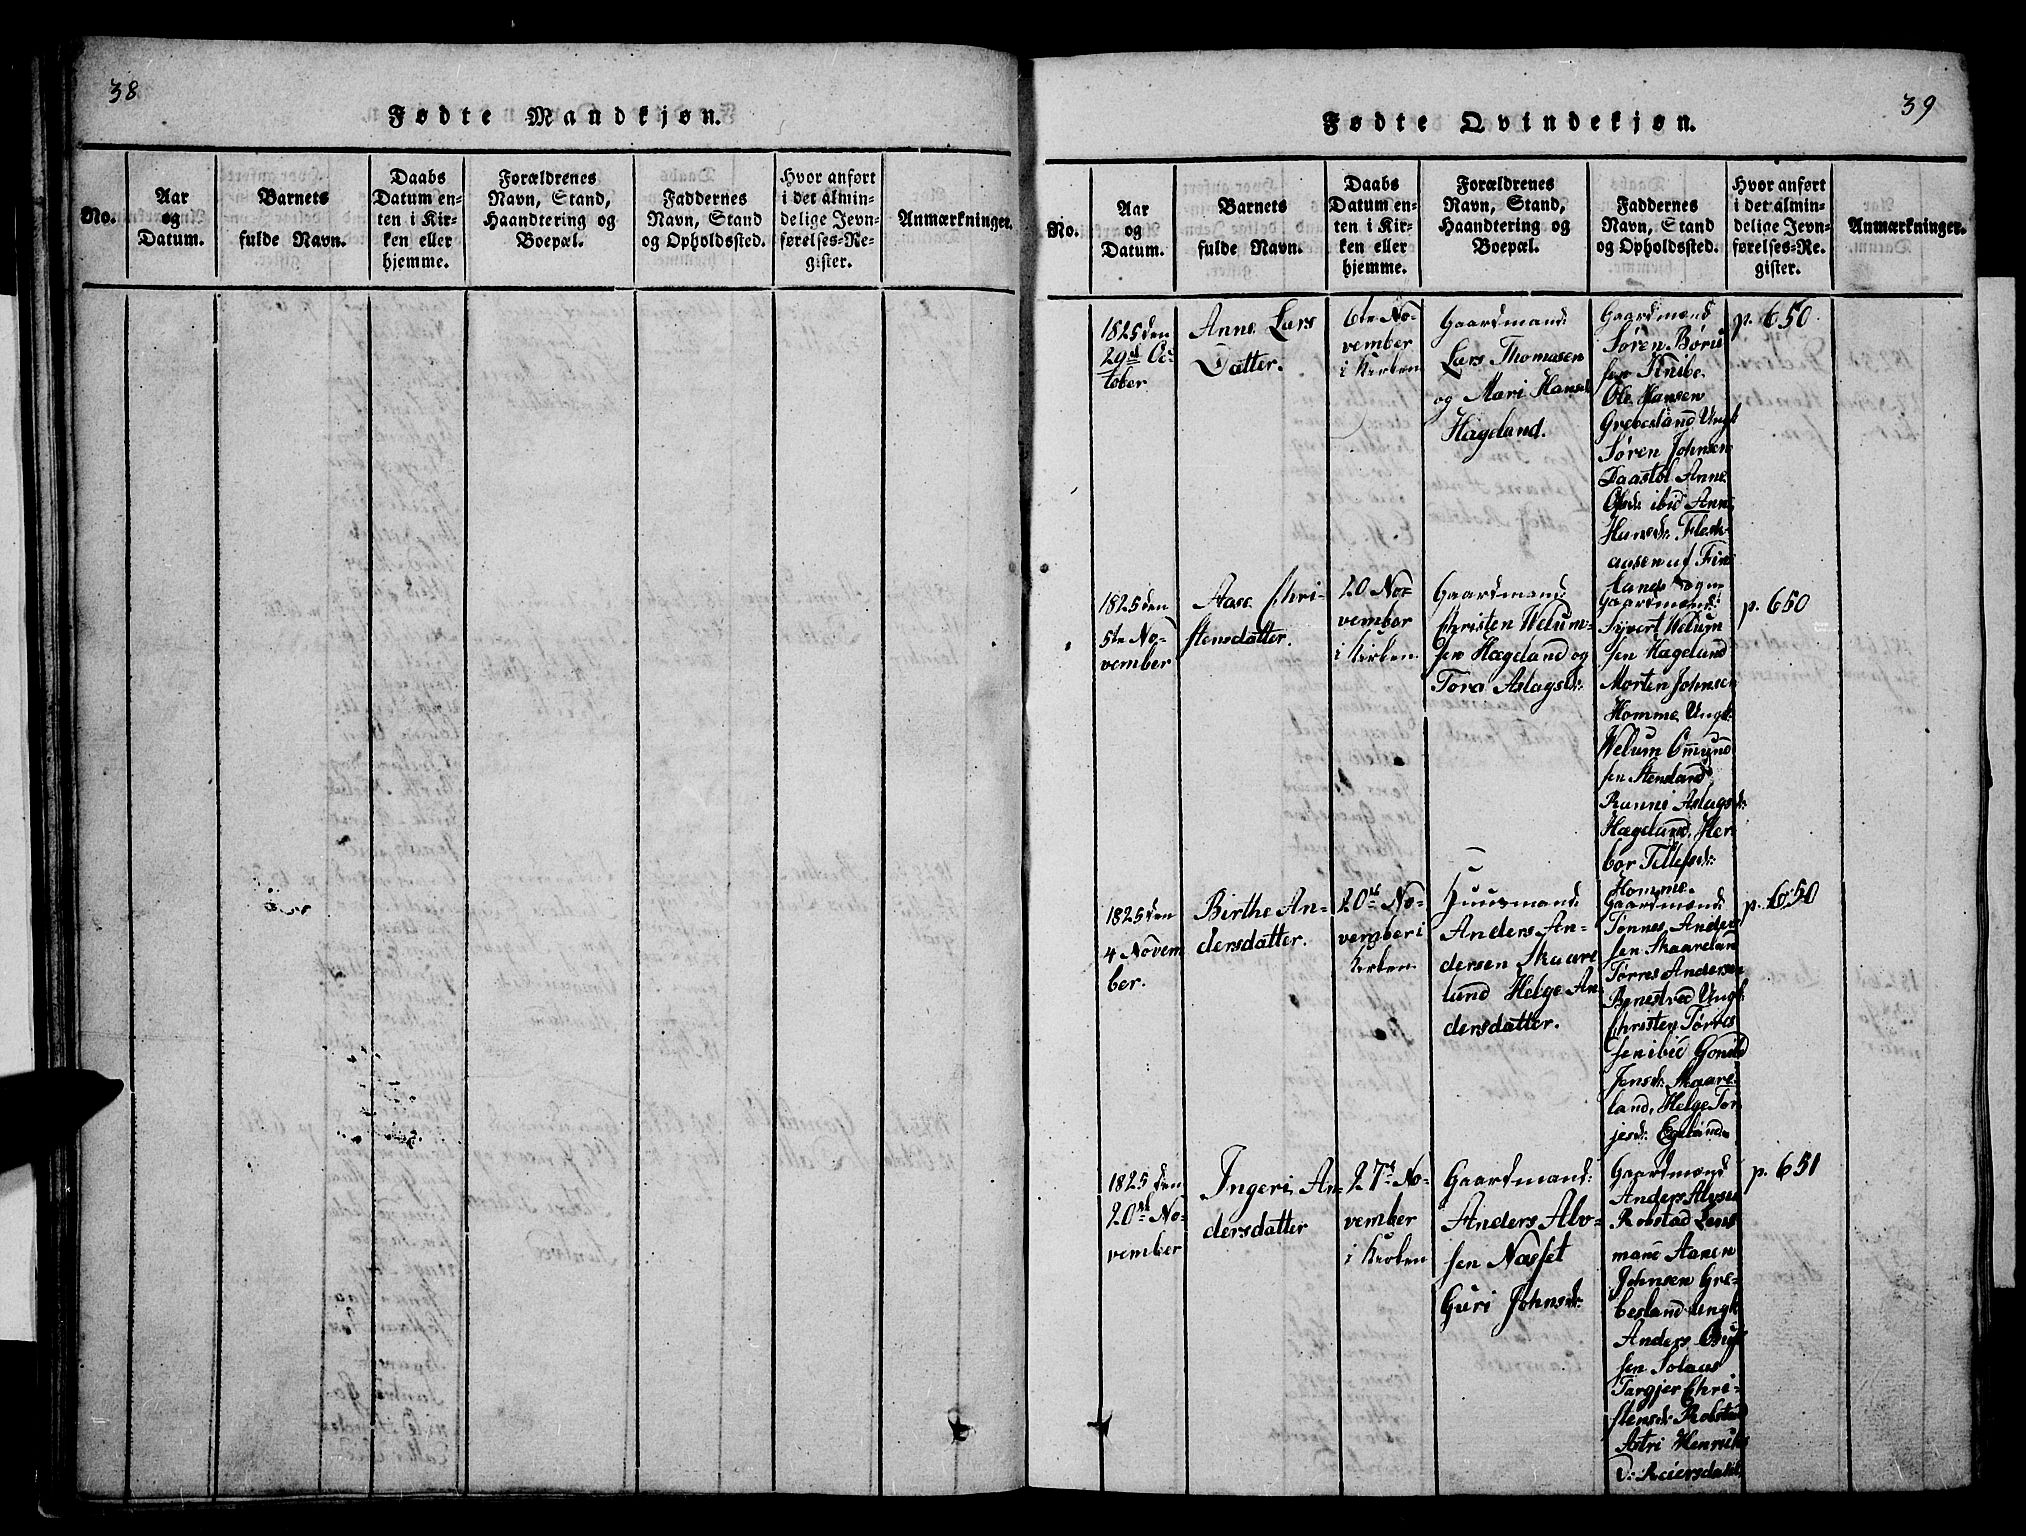 38
Fødte Mandkjøn.
No.
Aar
og
Datum.
Barnets
fulde Navn.
Daabs
Datum en-
ten i Kir-
ken eller
hjemme.
Forældrenes
Navn, Stand,
Haandtering og
Boepæl.
Faddernes
Navn, Stand
og Opholdssted.
Hvor anført
i det almin-
delige Jevn-
førelses-Re-
gister.
Anmærkninger.
39
Fødte Qvindekjøn.
No.
Aar
og
Datum.
Barnets
fulde Navn.
Daabs
Datum en-
ten i Kir-
ken eller
hjemme.
Forældrenes
Navn, Stand,
Haandtering og
Boepæl.
Faddernes
Navn, Stand
og Opholdssted.
Hvor anført
i det almin-
delige Jevn-
førelses-Re-
gister.
Anmærkninger.
1825 den
29d Oc-
tober
Anne Lars
Datter.
6te No-
vember
i Kirken
Gaardmand:
Lars Thomasen
og Mari Hansd:
Hageland.
Gaardmænd
Søren Børu
sen Knibe.
Ole Hansen
Grebesland Ungk
Søren Johnsen
Daastøl Anne
Olsd: ibid Anne
Hansd: Flesk-
aasen af Fin
lands Sogn
p. 650.
1825 den
5te No-
vember
Aase Chri-
stensdatter.
20 No-
vember
i Kirken
Gaardmand:
Christen Welum-
sen Hægeland og
Tora Aslagsd:
Gaardmænd:
Syvert Welum
sen Hægeland
Morten Johnsen
Homme, Ungk:
Welum Omund
sen Stensland
Ranni Aslagsd:
Hægeland, Her
bor Tellefsd:
Homme.
p. 650
1825 den
4 Novem
ber.
Birthe An-
dersdatter.
20de No-
vember i
Kirken
Huusmand:
Anders An-
dersen Skaare
land Helge An-
dersdatter.
Gaardmænd:
Tønnes Anders
sen Skaareland
Tørres Andersen
Benestved Ungk:
Christen Tørres
sen ibid Gonild
Jensd: Skaare-
land, Helge Tor
jesd: Egeland
p. 650
1825 den
20de No-
vember
Ingeri An-
dersdatter
27de No-
vember
i Kirken
Gaardmand:
Anders Alv-
sen Næsset
Guri Johnsd:
Gaardmænd
Anders Alvsen
Robstad Lens
mand Aanen
Johnsen Gre-
besland Ungk
Anders
sen Solaas
Targjer Chri-
stensd: Robstad
Astri Henriks
d: Reiersdahl,
p. 651